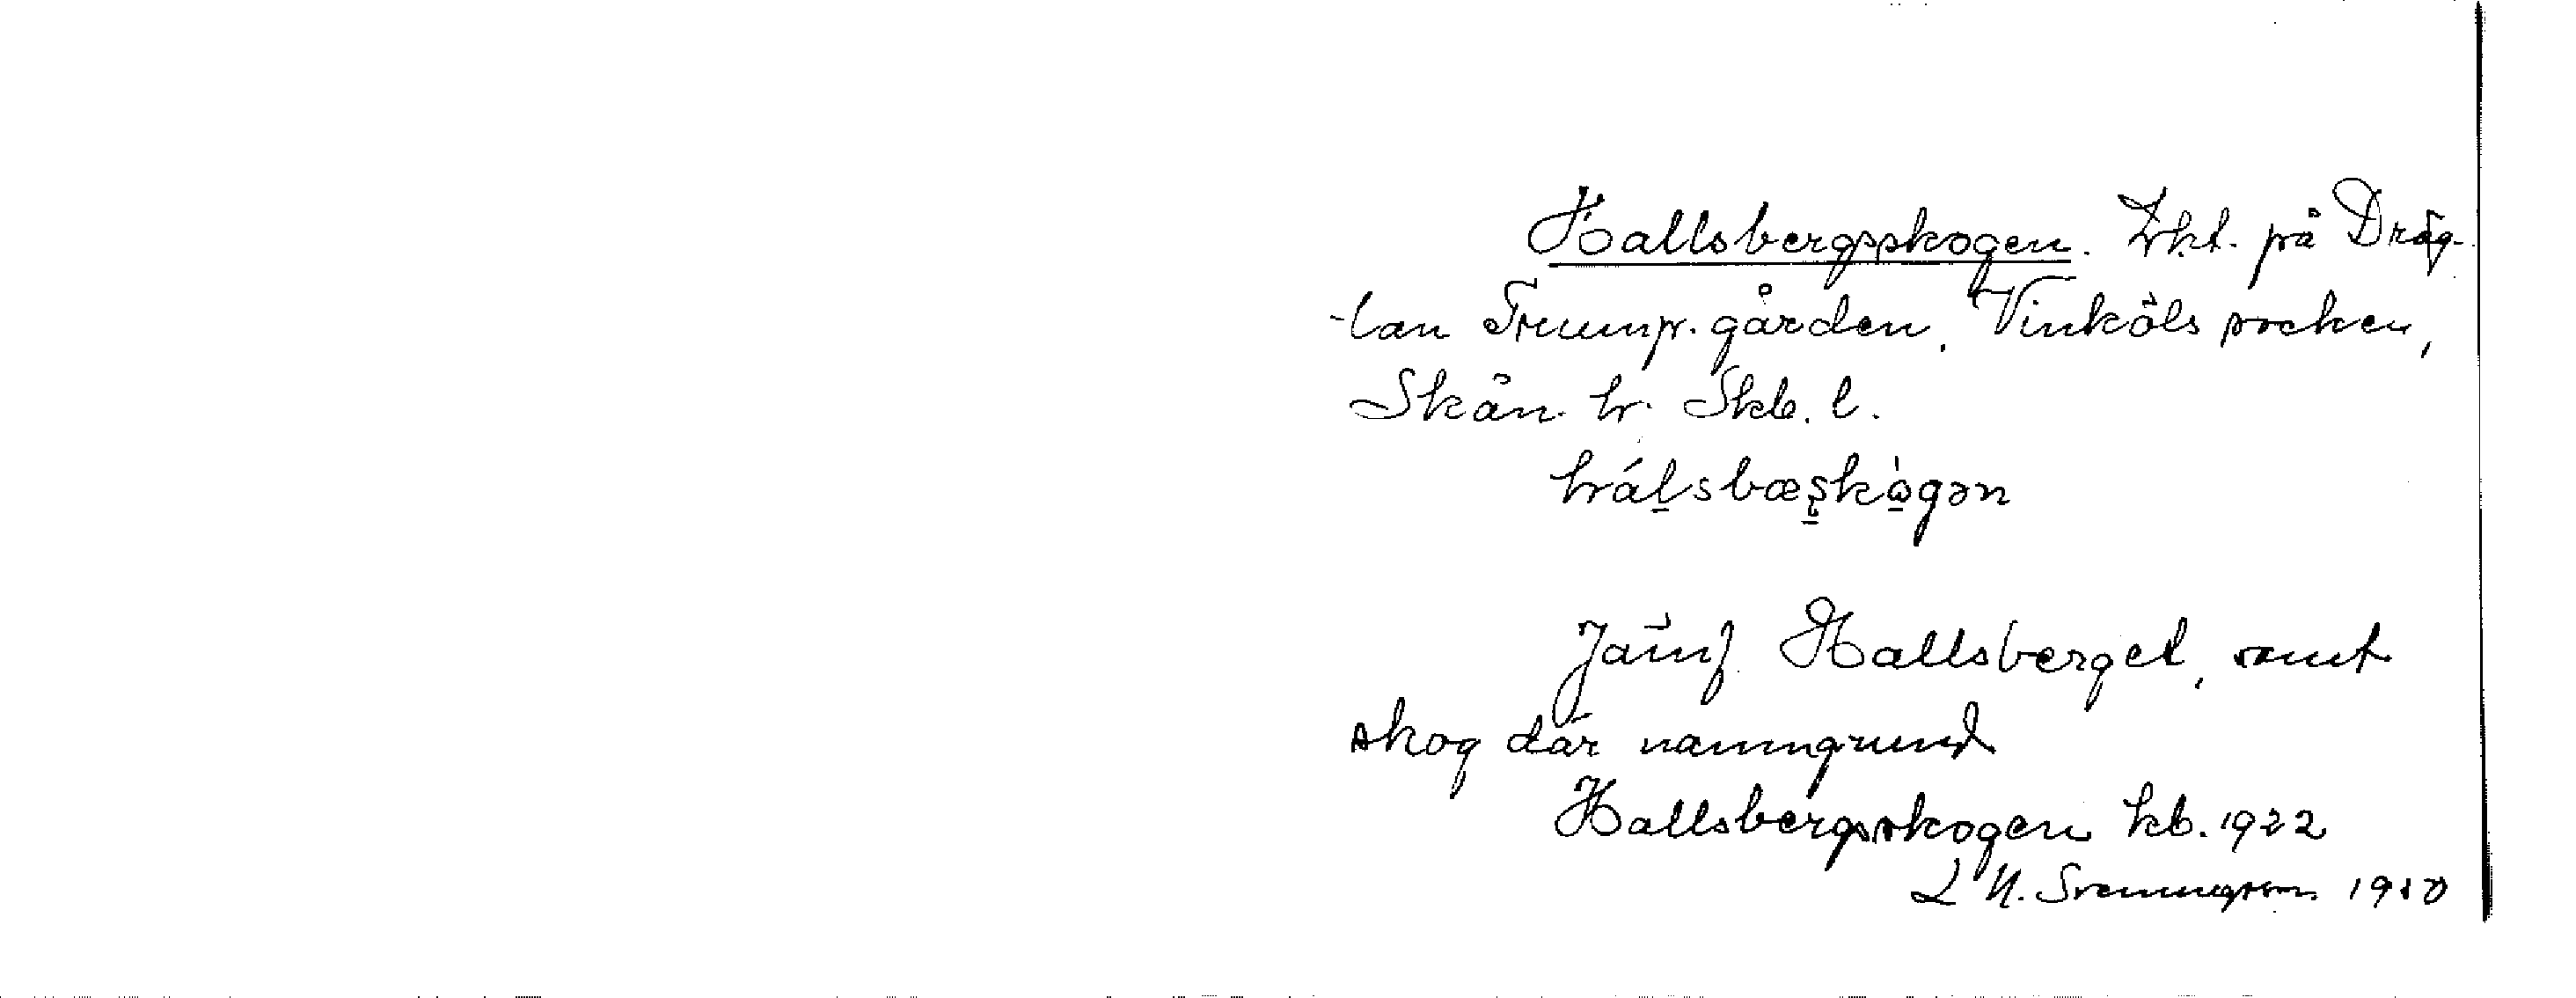 Hallsbergsskogen. Trkt. på Dräg-
-lan Trump. gården, Vinköls socken,
Skån. hr. Skb. l.
hálsbæskògən
Jämf Hallsberget, samt
skog där namngrund
Hallsbergsskogen kb. 1922
L N. Svenungsson 1930